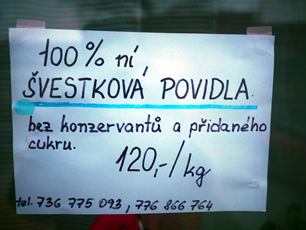 100% ní,
ŠVESTKOVÁ POVIDLA.
bez konzervantů a přidaného
cukru.
120,-/kg
tel. 736 775 093, 776 866 764